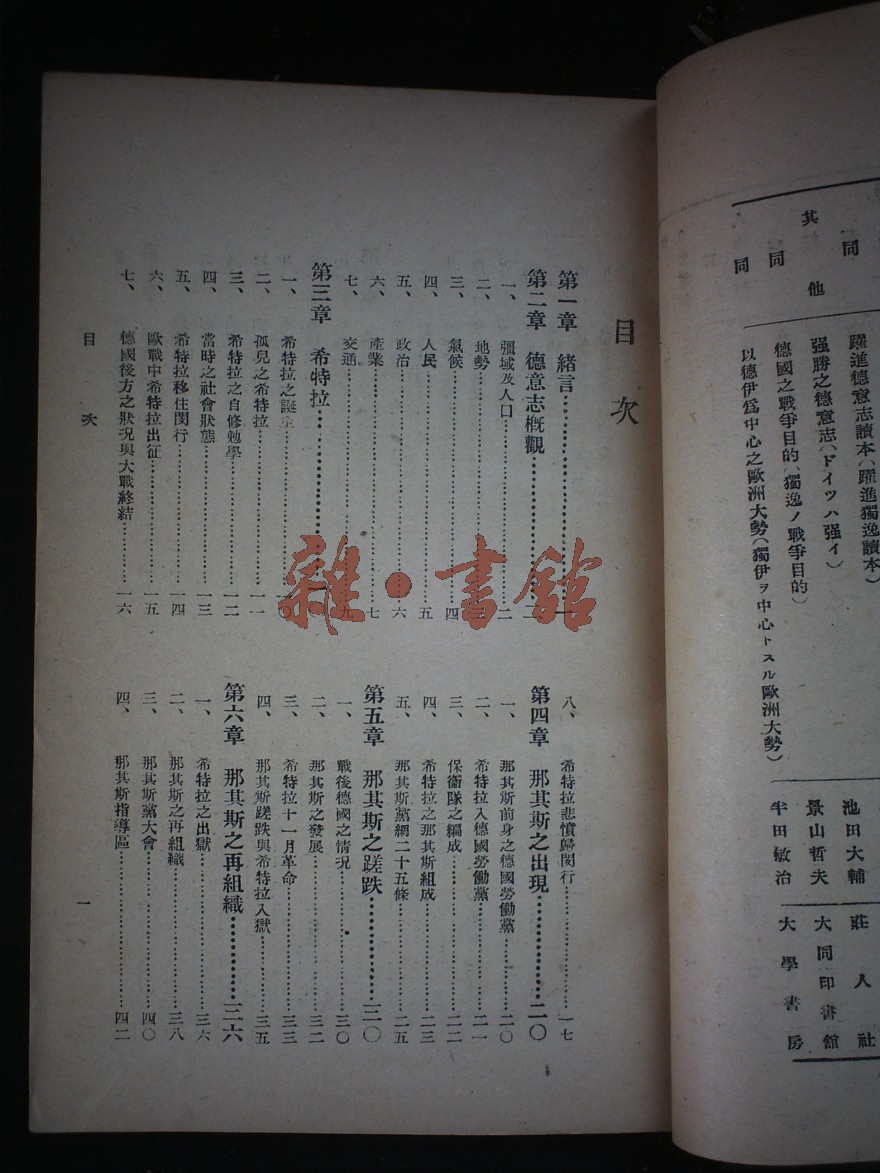 同
躍進德意志讀本(躍進獨逸讀本)
池田大輔
莊人社
其他
强勝之德意志(ドイツハ强イ)
景山哲夫
大同印書館
同
德國之戰爭目的(獨逸ノ戰爭目的)
半田敏治
大學書房
同
以德伊爲中心之歐洲大勢(獨伊ヲ中心トスル歐洲大勢)
目次
第一章 緒言……一
第二章 德意志概觀……二
一、 彊域及人口……二
二、 地勢……三
三、 氣候……四
四、 人民……五
五、 政治……六
六、 產業……七
七、 交通……九
第三章 希特拉……
一、 希特拉之誕生……一〇
二、 孤兒之希特拉……一一
三、 希特拉之自修勉學……一二
四、 當時之社會狀態……一三
五、 希特拉移住閔行……一四
六、 歐戰中希特拉出征……一五
七、 德國後方之狀況與大戰終結……一六
八、 希特拉悲憤歸閔行……一七
第四章 那其斯之出現……二〇
一、 那其斯前身之德國勞働黨……二〇
二、 希特拉入德國勞働黨……二一
三、 保衞隊之編成……二二
四、 希特拉之那其斯組成……二三
五、 那其斯黨網二十五條……二五
第五章 那其斯之蹉跌……三〇
一、 戰後德國之情況……三〇
二、 那其斯之發展……三二
三、 希特拉十一月革命……三三
四、 那其斯蹉跌與希特拉入獄……三五
第六章 那其斯之再組織……三六
一、 希特拉之出獄……三六
二、 那其斯之再組織……三八
三、 那其斯黨大會……四〇
四、 那其斯指導區……四二
目次
一
雜·書館